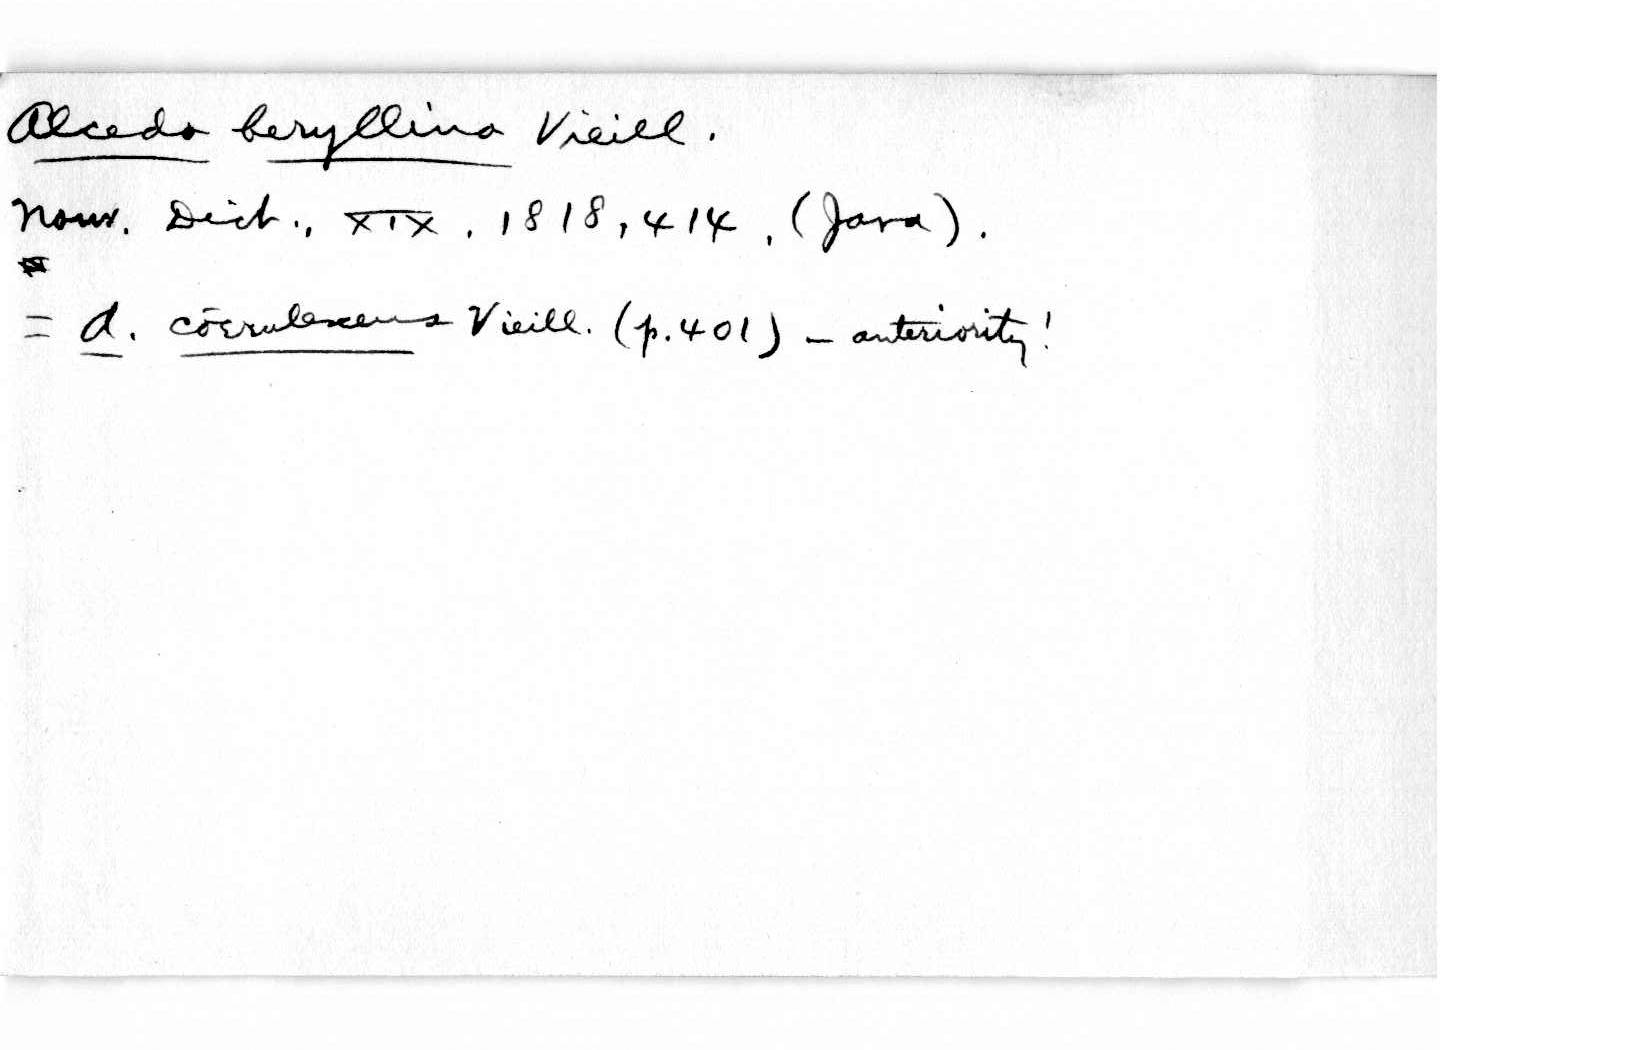 Alcedo beryllina Vieill.
Nouv. Dict., XIX, 1818, 414, (Java).
= A. cœrulescens Vieill. (p. 401) – anteriority!